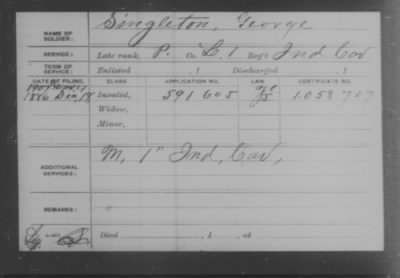 NAME OF SOLDIER: Singleton, George
SERVICE: Late rank, P. Co. L. 1 Reg't Ind Cav
TERM OF SERVICE: Enlisted , 1 Discharged , 1
DATE OF FILING. CLASS APPLICATION NO. LAW. CERTIFICATE NO.
1886 Dec, Invalid, 591605 1.058707
Widow,
Minor,
ADDITIONAL SERVICES: M, 1" Ind, Cav,
REMARKS:
Died , 1 , at